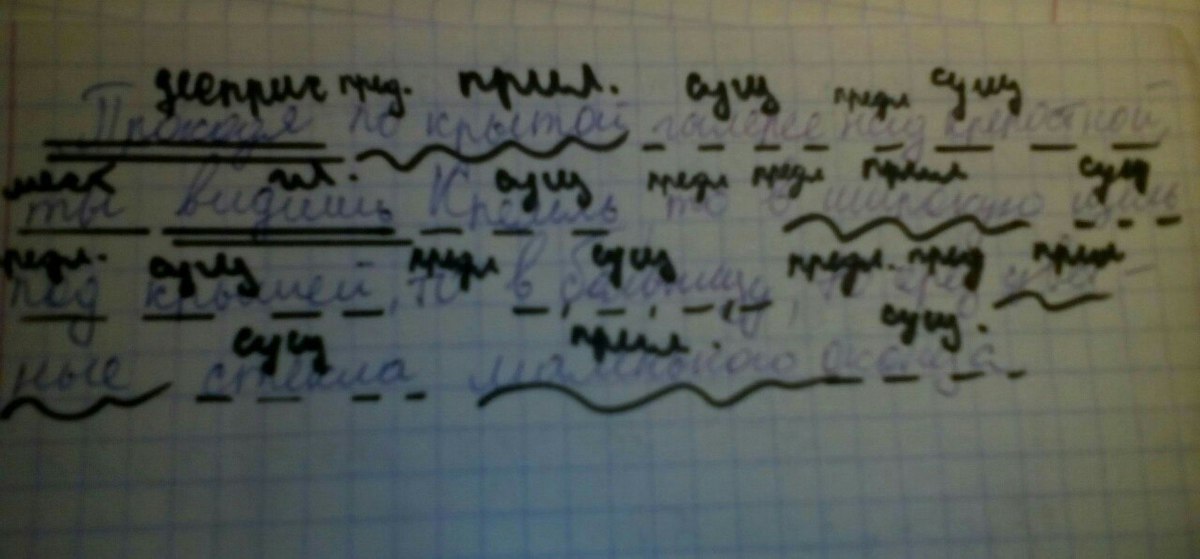 дееприч пред. прил. сущ предл сущ
Проходя по крытой галерее над крепостной
мест гл. сущ предл предл прил сущ
ты видишь Кремль, то в широкую щель
предл. сущ предл сущ предл. пред прил
под крышей, то в бойницу, то через
сущ прил. сущ.
ные стекла маленького оконца